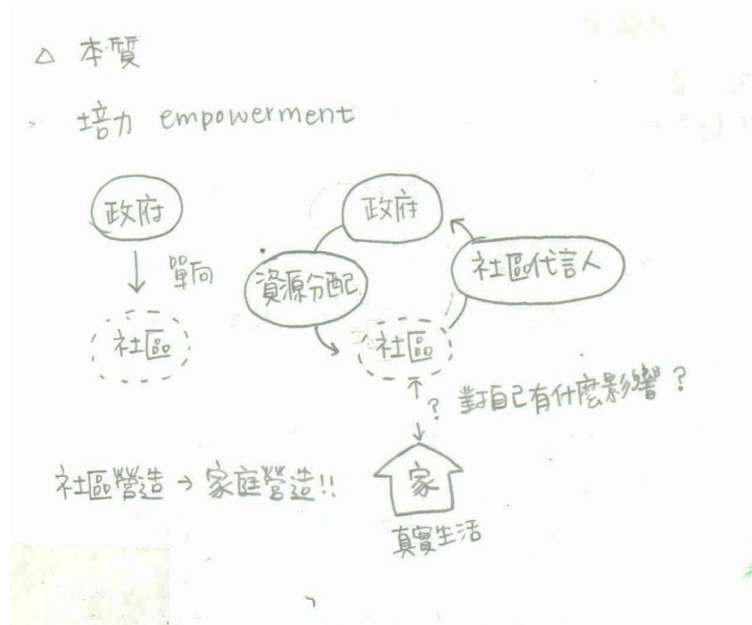 △ 本質
培力 empowerment
政府
單向
社區
政府
資源分配
社區代言人
社區
? 對自己有什麼影響?
社區營造 → 家庭營造!!
家
真實生活